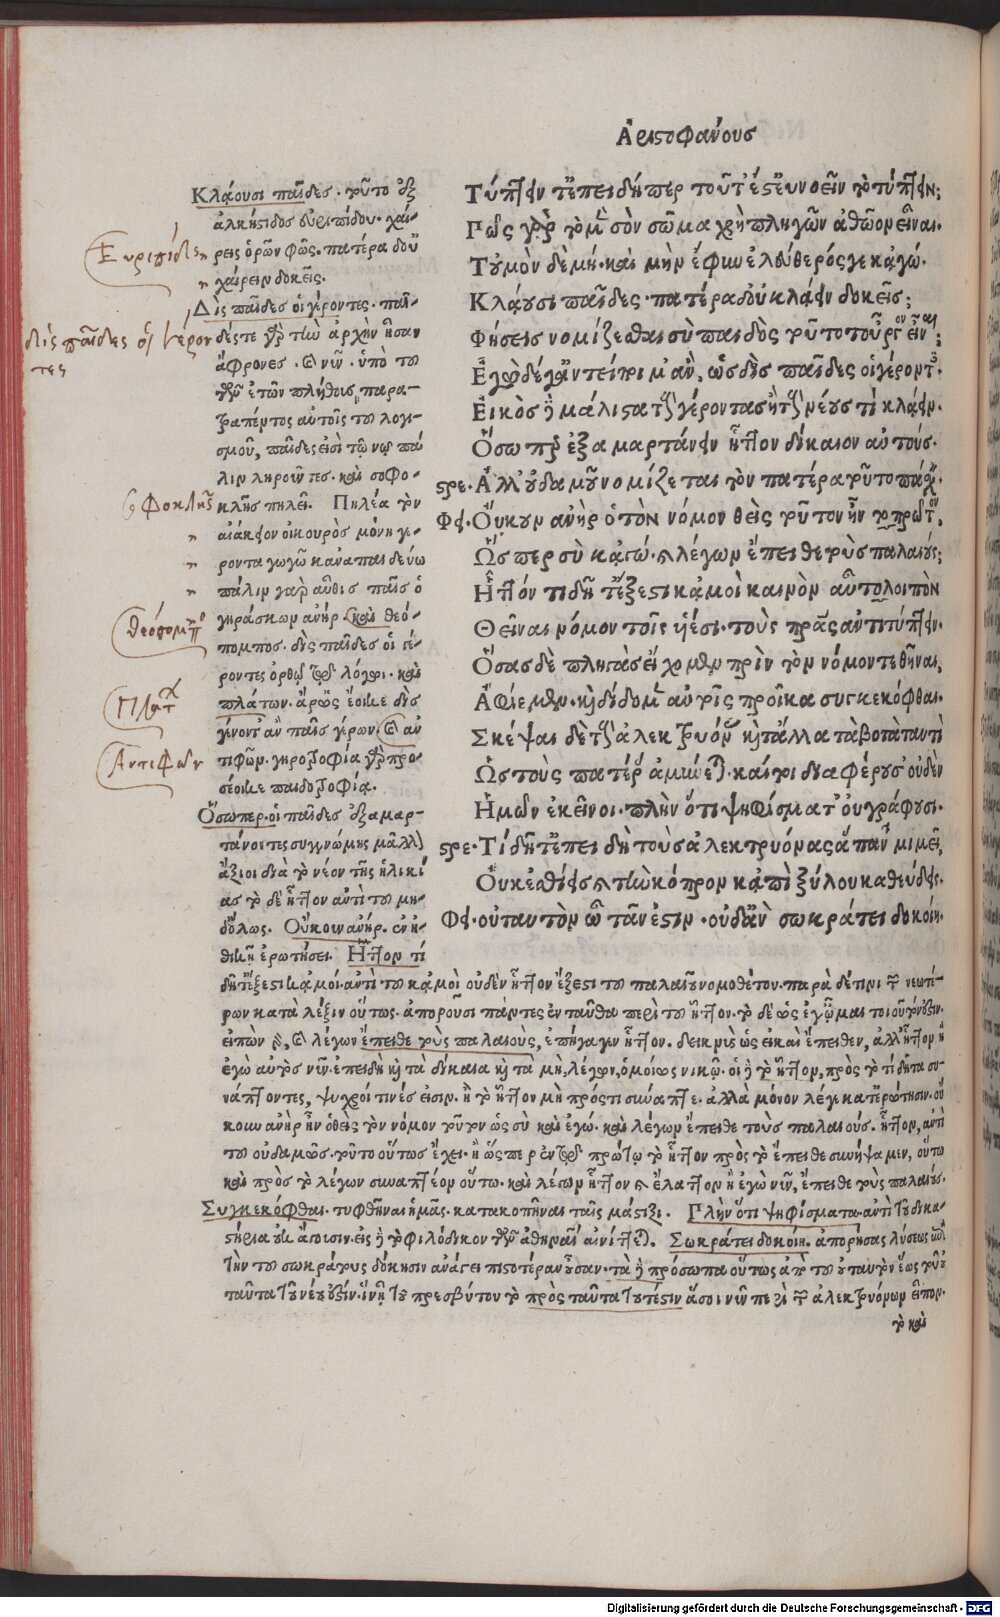 Ἀριστοφάνους
Τύπτειν τ' ἐπειδήπερ τοῦτ' ἔστ' εὐνοεῖν τὸ τύπτειν;
Πῶς γὰρ τὸ μὲν σὸν σῶμα χρὴ πληγῶν ἀθῶον εἶναι.
Τοὐμὸν δὲ μή. καὶ μὴν ἔφυν ἐλεύθερός γε κἀγώ.
Κλάουσι παῖδες. πατέρα δ' οὐ κλάειν δοκεῖς;
Φήσεις νομίζεσθαι σὺ παιδὸς τοῦτο τοὖργον εἶναι;
Ἐγὼ δέ γ' ἀντείποιμ' ἂν, ὡς δὶς παῖδες οἱ γέροντες.
Εἰκὸς δὲ μάλιστα τοὺς γέροντας ἢ τοὺς νέους τι κλάειν.
Ὅσῳπερ ἐξαμαρτάνειν ἧττον δίκαιον αὐτούς.
στρε. Ἀλλ' οὐδαμοῦ νομίζεται τὸν πατέρα τοῦτο πάσχειν.
Φει. Οὔκουν ἀνὴρ ὁ τὸν νόμον θεὶς τοῦτον ἦν τὸ πρῶτον,
Ὥσπερ σὺ κἀγώ. καὶ λέγων ἔπειθε τοὺς παλαιούς;
Ἧττόν τι δῆτ' ἔξεστι κἀμοὶ καινὸν αὖ τὸ λοιπὸν
Θεῖναι νόμον τοῖς υἱέσι. τοὺς πατέρας ἀντιτύπτειν.
Ὅσας δὲ πληγὰς εἴχομεν πρὶν τὸν νόμον τεθῆναι,
Ἀφίεμεν. καὶ δίδομεν αὐτοῖς προῖκα συγκεκόφθαι.
Σκέψαι δὲ τοὺς ἀλεκτρυόνας καὶ τἄλλα τὰ βοτὰ ταυτὶ
Ὡς τοὺς πατέρας ἀμύνεται. καίτοι διαφέρουσ' οὐδὲν
Ἡμῶν ἐκεῖνοι. πλὴν ὅτι ψηφίσματ' οὐ γράφουσι.
στρε. Τί δῆτ' ἐπειδὴ τοὺς ἀλεκτρυόνας ἅπαντα μιμεῖ,
Οὐκ ἐσθίεις καὶ τὴν κόπρον κἀπὶ ξύλου καθεύδεις.
Φει. οὐ ταυτὸν ὦ τᾶν ἐστιν. οὐδ' ἂν σωκράτει δοκοίη.
Κλάουσι παῖδες. τοῦτο ἐξ
ἀλκήστιδος εὐριπίδου. χαί-
ρεις ὁρῶν φῶς. πατέρα δ' οὐ
χαίρειν δοκεῖς.
Δὶς παῖδες οἱ γέροντες. παῖ-
δές τε γὰρ τὴν ἀρχὴν ἦσαν
ἄφρονες. καὶ νῦν. ὑπὸ τοῦ
τῶν ἐτῶν πλήθους, παρα-
τραπέντος αὐτοῖς τοῦ λογι-
σμοῦ, παῖδες εἰσὶ τῷ νῷ πά
λιν ληροῦντες. καὶ σοφο-
κλῆς πηλεῖ. Πηλέα τὸν
αἰάκειον οἰκουρὸς μόνη γε-
ροντα γωγῶ κἀναπαιδεύω
πάλιν γαρ αὖθις παῖς ὁ
γηράσκων ἀνήρ. καὶ θεό-
πομπος. δὶς παῖδες οἱ γέ-
ροντες ὀρθῷ τῷ λόγῳ. καὶ
πλάτων. ἆρ' ὡς ἔοικε δὶς
γένοιτ' ἂν παῖς γέρων. καὶ ἀν
τιφῶν. γηροτροφία γὰρ προ-
σέοικε παιδοτροφίᾳ.
Ὅσῳπερ. οἱ παῖδες ἐξαμαρ-
τάνοντες συγγνώμης μᾶλλον
ἄξιοι διὰ τὸ νέον τῆς ἡλικί
ας τὸ δὲ ἧττον ἀντὶ τοῦ μη-
δόλως. Οὔκουν ἀνήρ. ἐν ἠ-
θικῇ ἐρωτήσει. Ἧττον τί
δῆτ' ἔξεστι κἀμοί. ἀντὶ τοῦ κἀμοὶ οὐδὲν ἧττον ἔξεστι τοῦ παλαιοῦ νομοθέτου. παρὰ δέ τινι τῶν νεωτέ-
ρων κατὰ λέξιν οὕτως. ἀποροῦσι πάντες ἐνταῦθα περὶ τοῦ ἧττον. τὸ δὲ ὡς ἐγᾦμαι τοιοῦτόν ἐστιν.
εἰπὼν γὰρ, καὶ λέγων ἔπειθε τοὺς παλαιοὺς, ἐπήγαγεν ἧττον. δεικνὺς ὡς εἰ καὶ ἔπειθεν, ἀλλ' ἧττον ἢ
ἐγὼ αὐτὸς νῦν. ἐπειδὴ καὶ τὰ δίκαια καὶ τὰ μὴ, λέγων, ὁμοίως νικῶ. οἱ δὲ τὸ ἧττον, πρὸς τὸ τί δῆτα συ-
νάπτοντες, ψυχροί τινές εἰσιν. ἢ τὸ ἧττον μὴ πρός τι συνάπτε. ἀλλὰ μόνον λέγε κατ' ἐρώτησιν. οὔ
κουν ἀνὴρ ἦν ὁ θεὶς τὸν νόμον τοῦτον ὡς σὺ καὶ ἐγώ. καὶ λέγων ἔπειθε τοὺς παλαιούς. ἧττον, ἀντὶ
τοῦ οὐδαμῶς. τοῦτο οὕτως ἔχει. ἢ ὥσπερ ἐν τῷ πρώτῳ τὸ ἧττον πρὸς τὸ ἔπειθε συνήψαμεν, οὕτω
καὶ πρὸς τὸ λέγων συναπτέον οὕτω. καὶ λέγων ἧττον καὶ ἔλαττον ἢ ἐγὼ νῦν, ἔπειθε τοὺς παλαιούς.
Συγκεκόφθαι. τυφθῆναι ἡμᾶς. κατακοπῆναι ταῖς μάστιξι. Πλὴν ὅτι ψηφίσματα. ἀντὶ τοῦ δικα-
στήρια οὐκ ἄγουσιν. εἰς δὲ τὸ φιλόδικον τῶν ἀθηναίων αἰνίττεται. Σωκράτει δοκοίη. ἀπορήσας λύσεως ἐπὶ
τὴν τοῦ σωκράτους δόκησιν ἀνάγει πιστοτέραν οὖσαν. τὰ δὲ πρόσωπα οὕτως ἀπὸ τοῦ οὐ ταυτὸν ἕως τοῦ
ταῦτα τοῦ νέου ἐστίν. ἵν' ᾖ τοῦ πρεσβύτου τὸ πρὸς ταῦτα τουτέστιν ἅ σοι νῦν περὶ τῶν ἀλεκτρυόνων εἶπον.
τὸ καὶ
Εὐριπίδης
δὶς παῖδες οἱ γέρον
τες
Σοφοκλῆς
Θεόπομπος
Πλάτ
Ἀντιφῶν
Digitalisierung gefördert durch die Deutsche Forschungsgemeinschaft - DFG